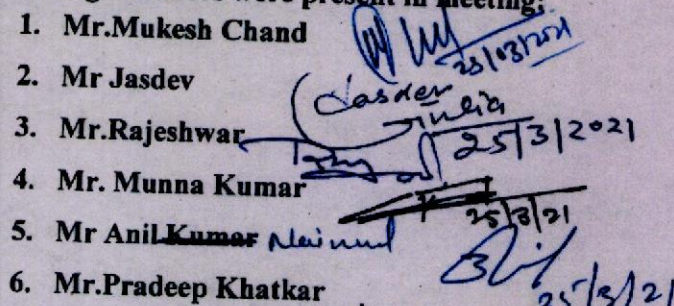 were present in meeting:
1. Mr.Mukesh Chand 25/03/2021
2. Mr Jasdev Jasdev
3. Mr.Rajeshwar 25/3/2021
4. Mr. Munna Kumar 25/3/21
5. Mr Anil Kumar
6. Mr.Pradeep Khatkar 25/3/21